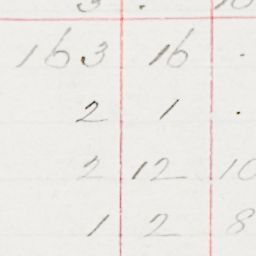 3 . 10
163 16 .
2 1 .
2 12 10
1 2 8